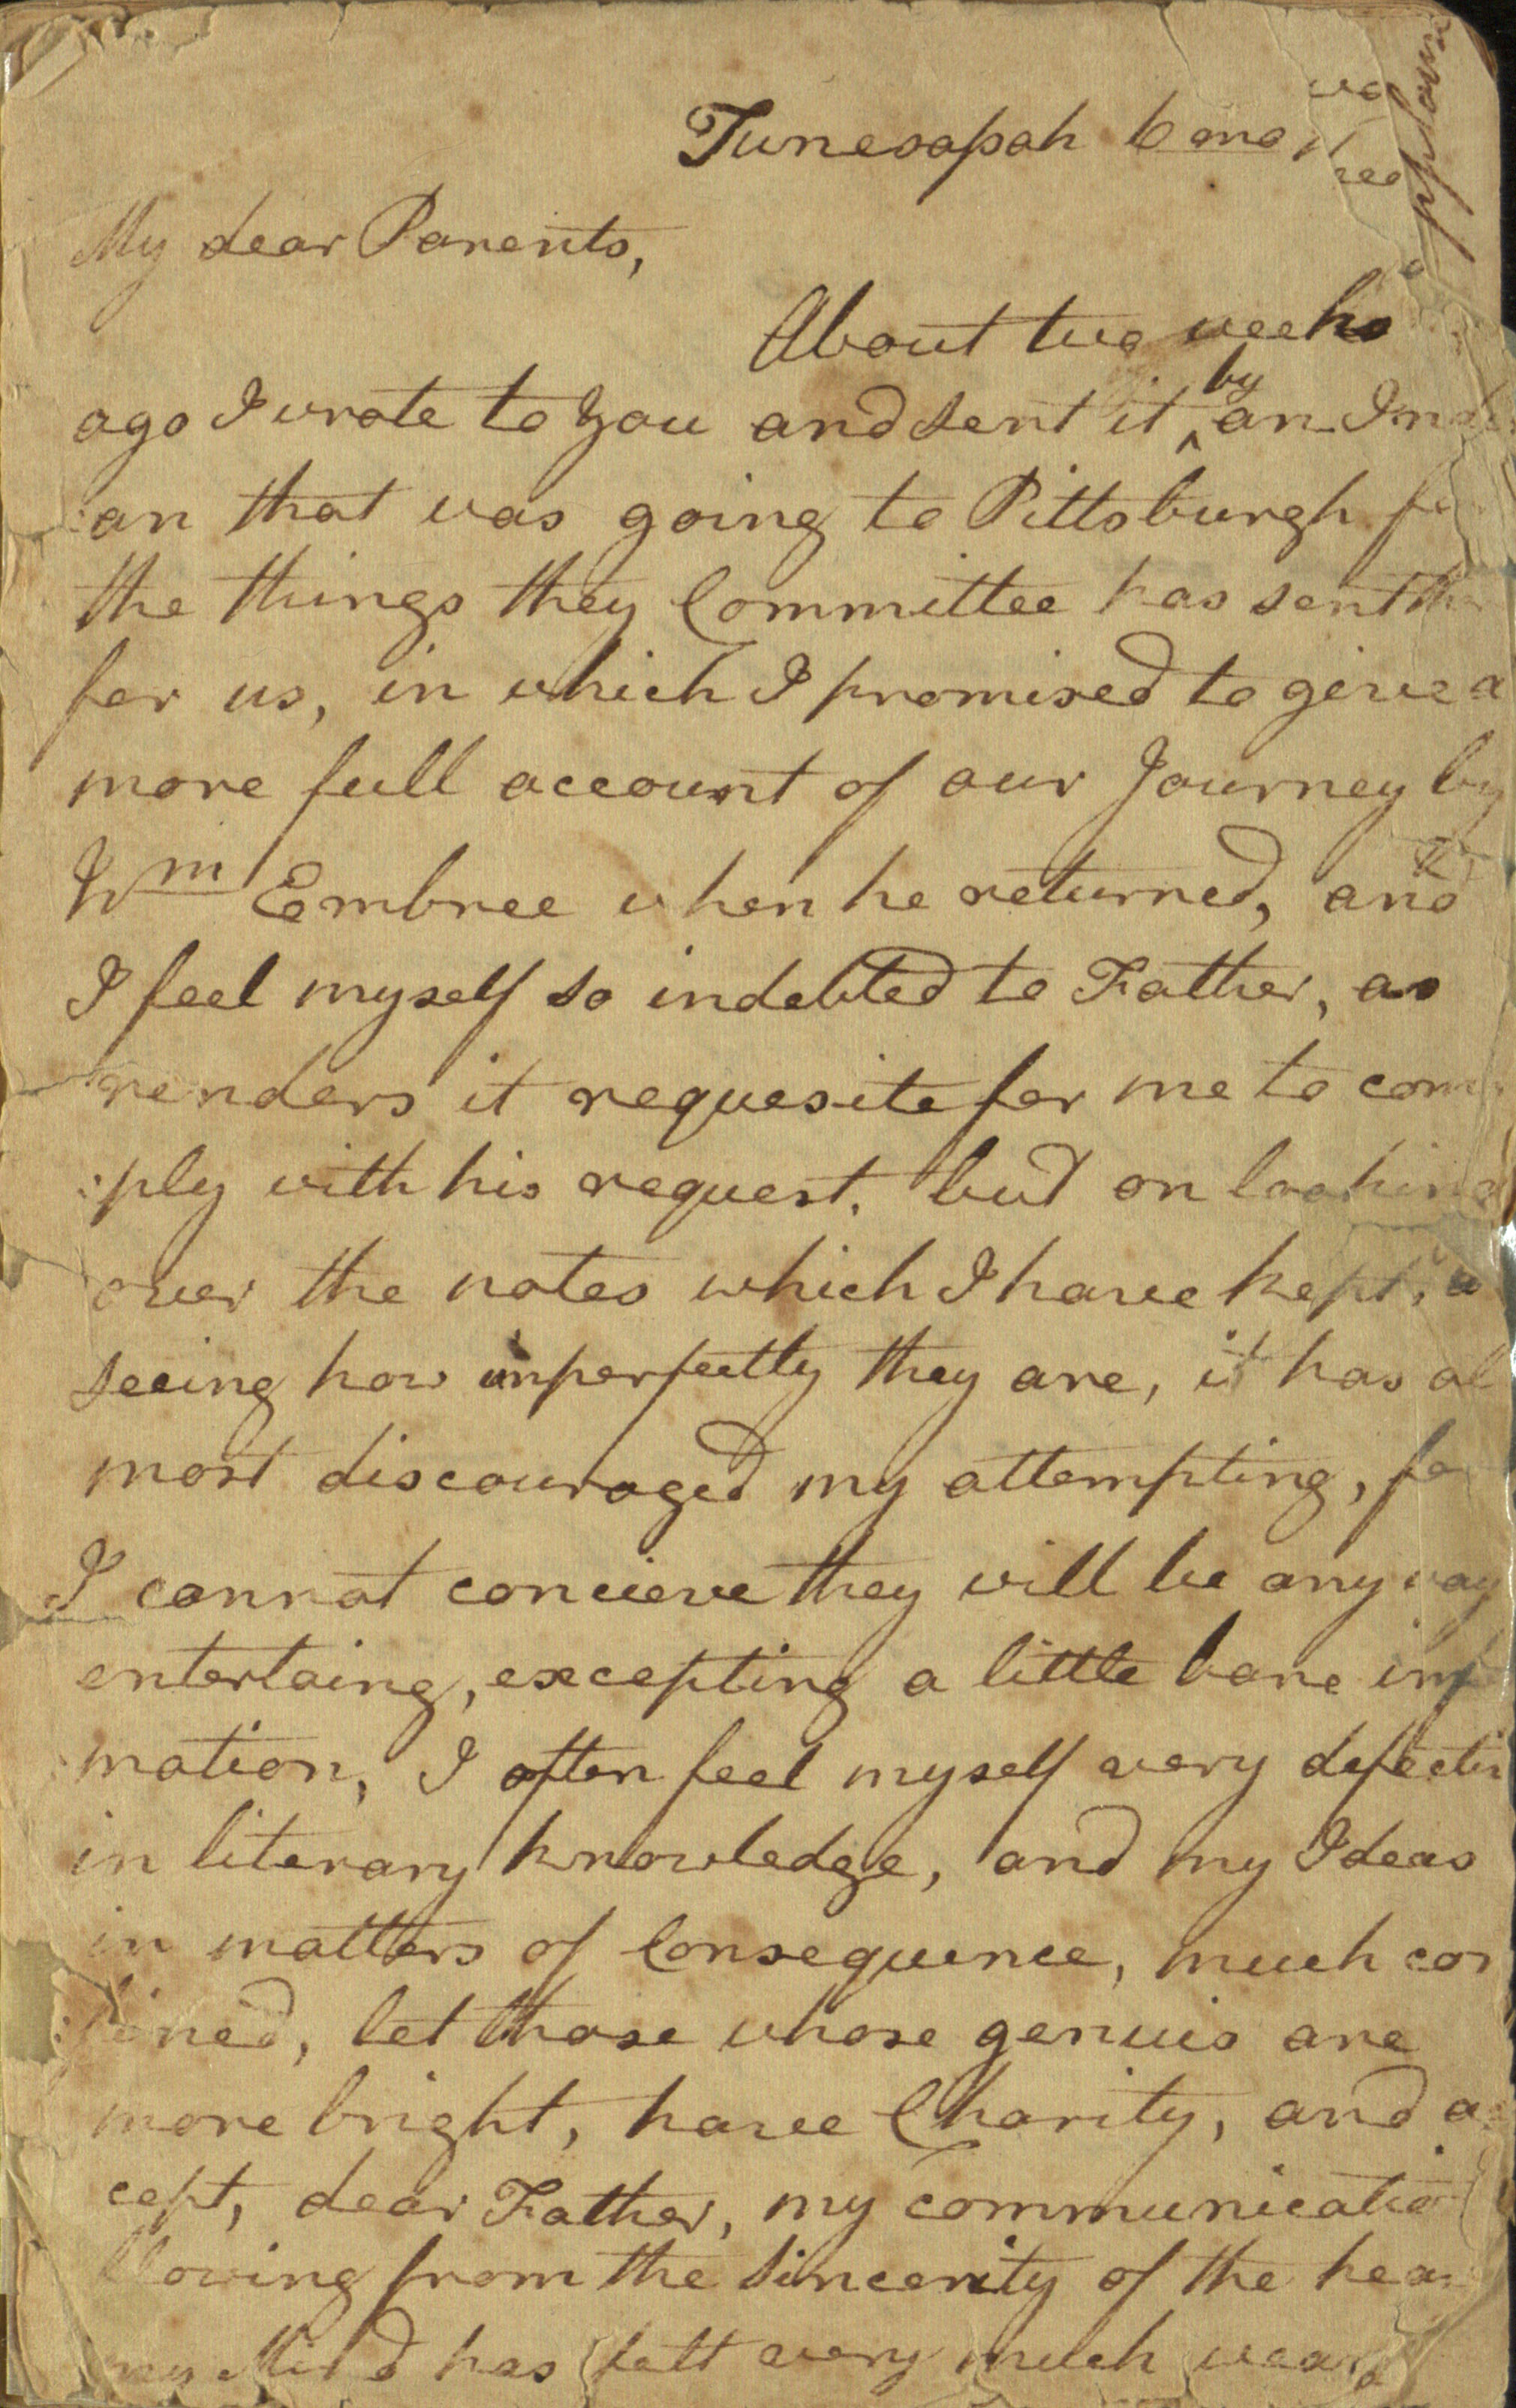 Tunesapah 6 mo
My dear Parents,
About two weeks
ago I wrote to you and sent it ^by an Indi
:an that was going to Pittsburgh for
the things they Committee has sent ther
for us, in which I promised to give a
more full account of our Journey by
Wm Embree when he returned, and
I feel myself so indebted to Father, as
renders it requesite for me to com
:ply with his request, but on looking
over the notes which I have kept,
seeing how imperfectly they are, it has al
most discouraged my attempting, for
I cannot concieve they will be any way
entertaing, excepting a little bare inf
mation, I often feel myself very defectiv
in literary knowledge, and my Ideas
in matters of Consequence, much con
:fined, let those whose genius are
more bright, have Charity, and ac
cept, dear Father, my communicatio
flowing from the sincerity of the hear
my Mind has felt very much